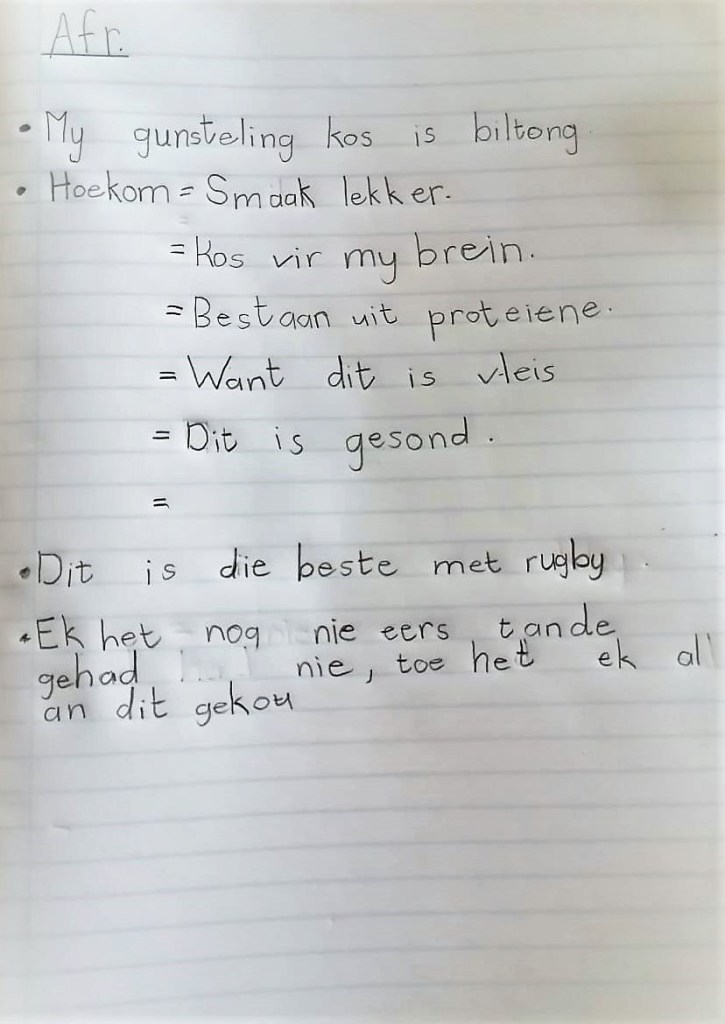 Afr.
• My gunsteling kos is biltong
• Hoekom = Smaak lekker.
= Kos vir my brein.
= Bestaan uit proteiene.
= Want dit is vleis
= Dit is gesond.
=
• Dit is die beste met rugby.
• Ek het nog nie eers tande
gehad nie, toe het ek al
an dit gekou